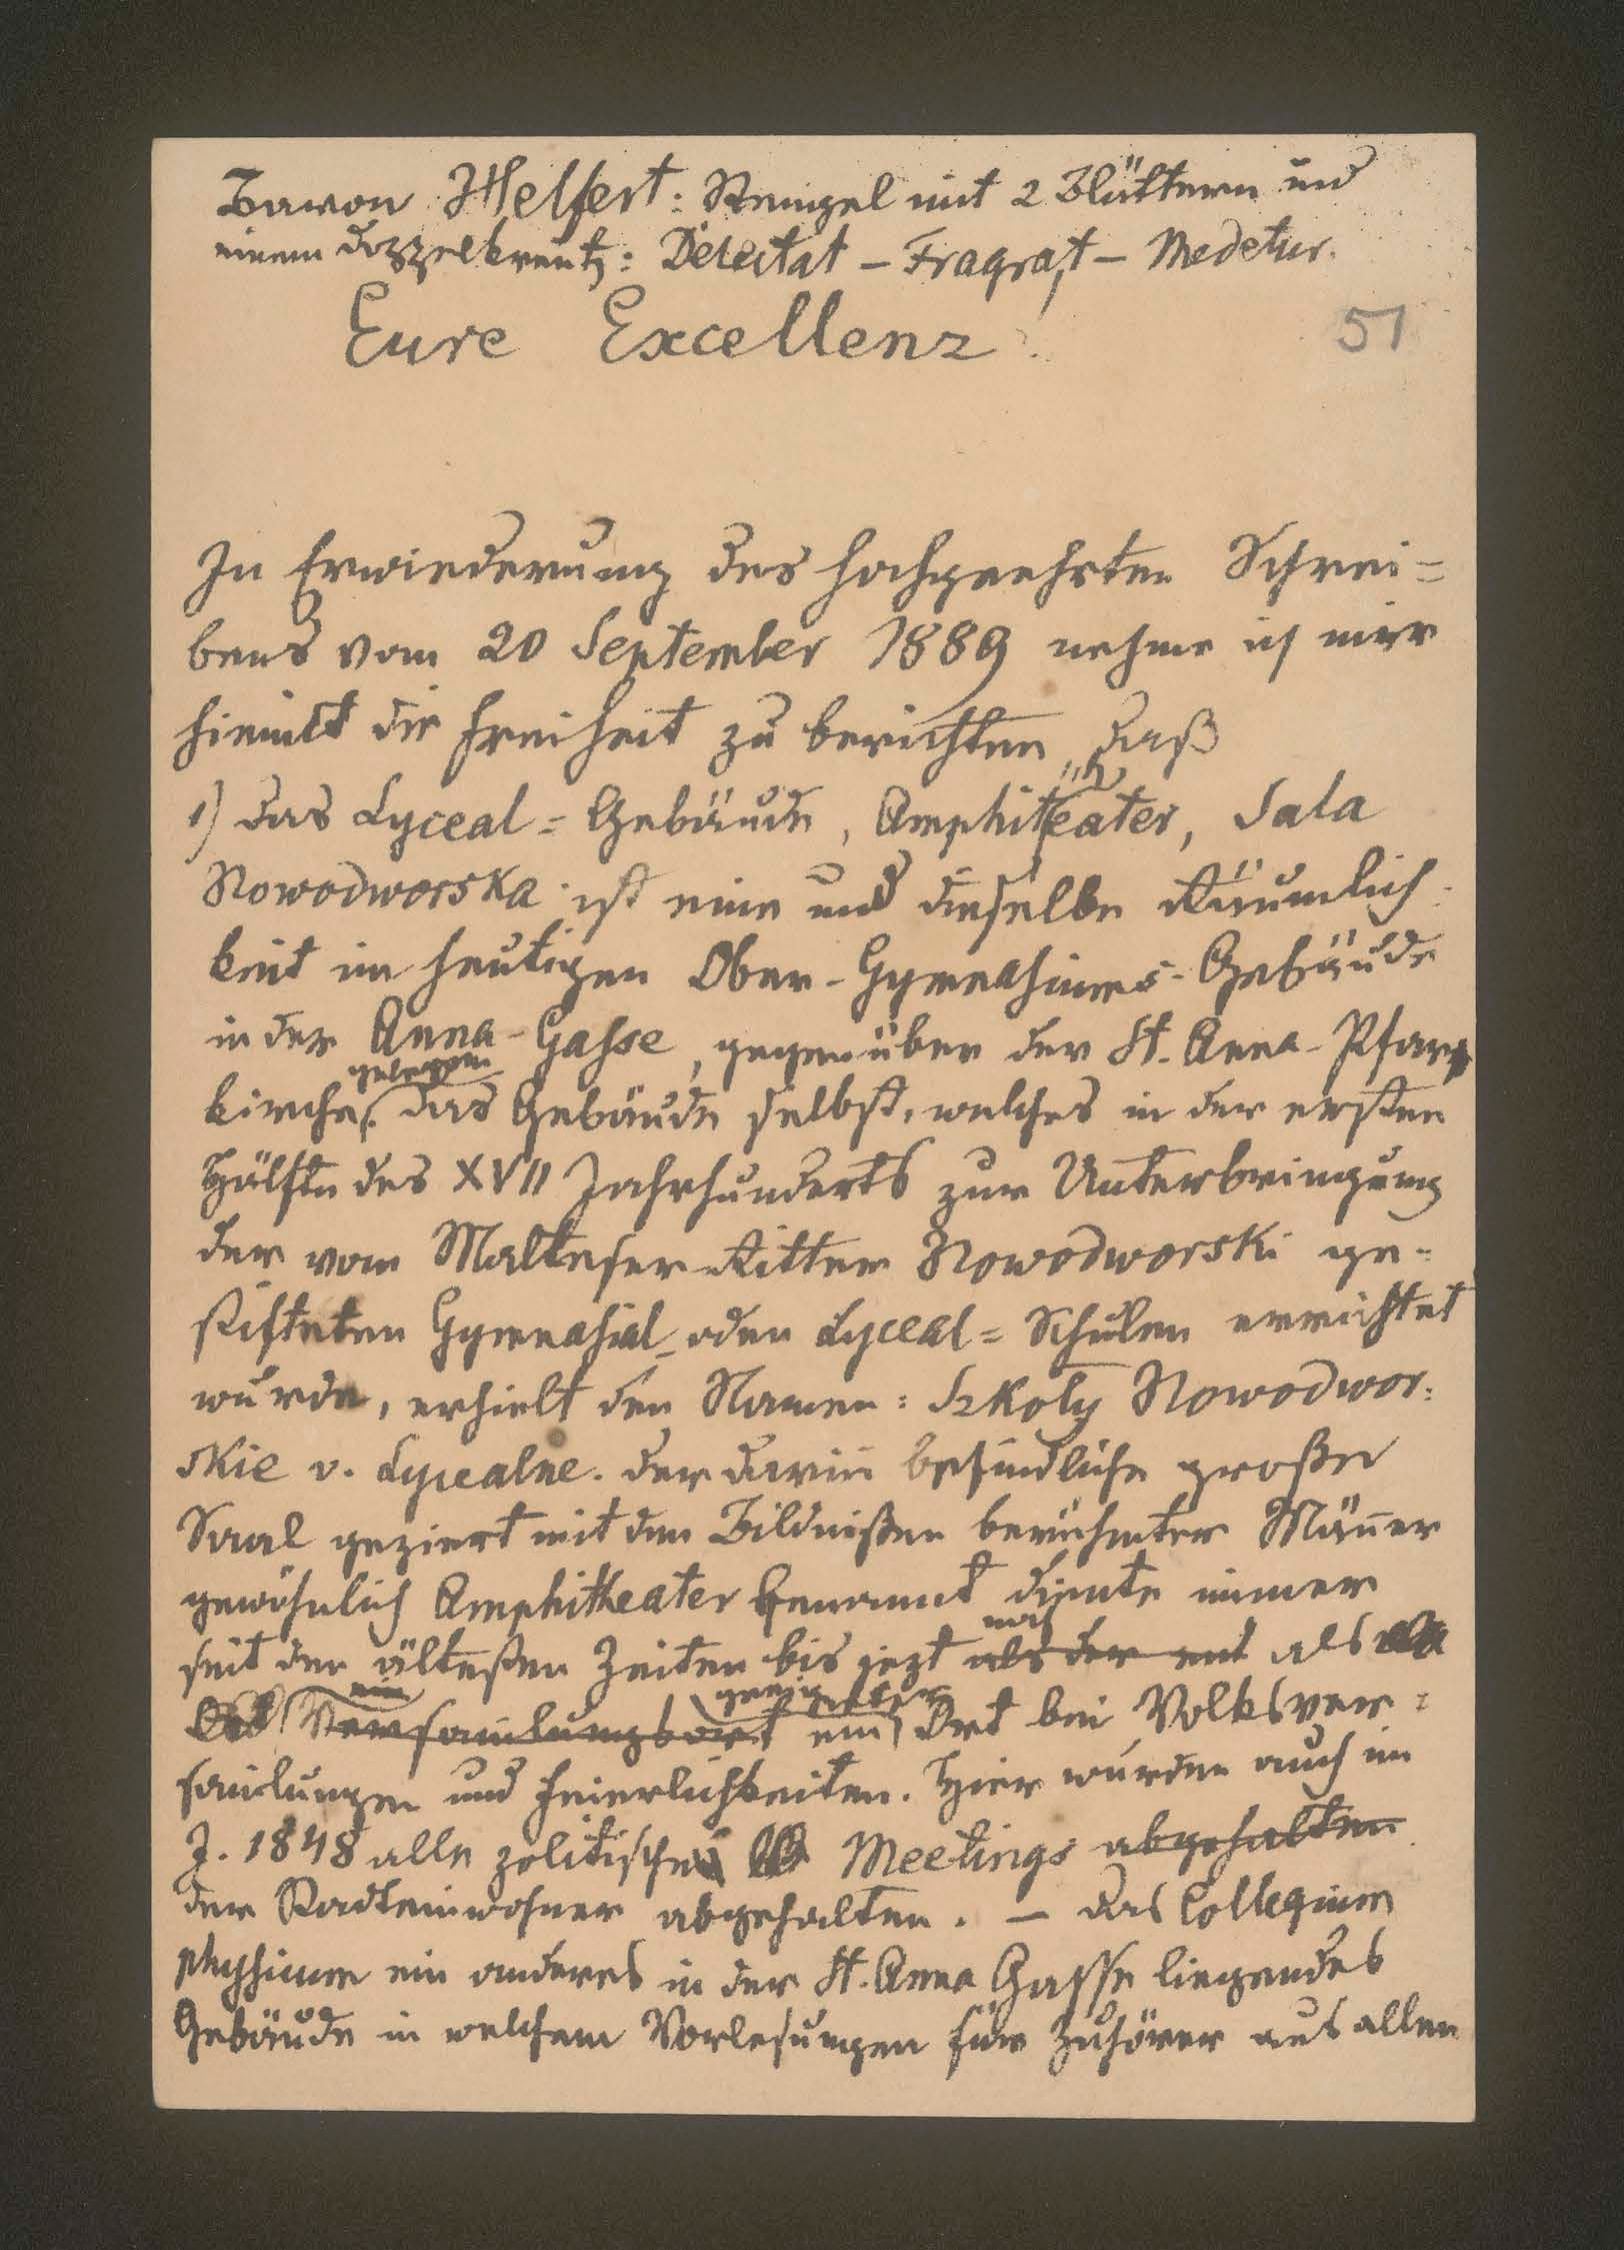 Baron Helfert: Stengel mit 2 Blättern und
einem Doppelkreutz: Delectat – Fragrat – Medetur.
Eure Excellenz!
51
In Erwiederung des hochgeehrten Schrei=
bens vom 20 September 1889 nehme ich mir
hiemit die Freiheit zu berichten, daß
1) das Lyceal=Gebäude, Amphitheater, Sala
Nowodworska ist eine und dieselbe Räumlich-
keit im heutigen Ober-Gymnasiums-Gebäude
in der Anna-Gasse, gegenüber der St. Anna-Pfarr
kirche gelegen. das Gebäude selbst, welches in der ersten
Hälfte des XVII Jahrhunderts zur Unterbringung
der vom Malteser-Ritter Nowodworski ge=
stifteten Gymnasial- oder Lyceal=Schulen errichtet
wurde, erhielt den Namen: Szkoły Nowodwor=
skie v. Lycealne. der darin befindliche große
Saal geziert mit den Bildnißen berühmter Männer
gewöhnlich Amphitheater genannt diente immer
seit den ältesten Zeiten bis jezt noch als der als
Ort ein Versamlungsort ein geeigneter Ort bei Volksver=
samlungen und Feierlichkeiten. Hier wurden auch im
J. 1848 alle politischen Meetings abgehalten
der Stadteinwohner abgehalten. – das Collegium
physicum ein anderes in der St. Anna Gasse liegendes
Gebäude in welchem Vorlesungen für Zuhörer aus allen